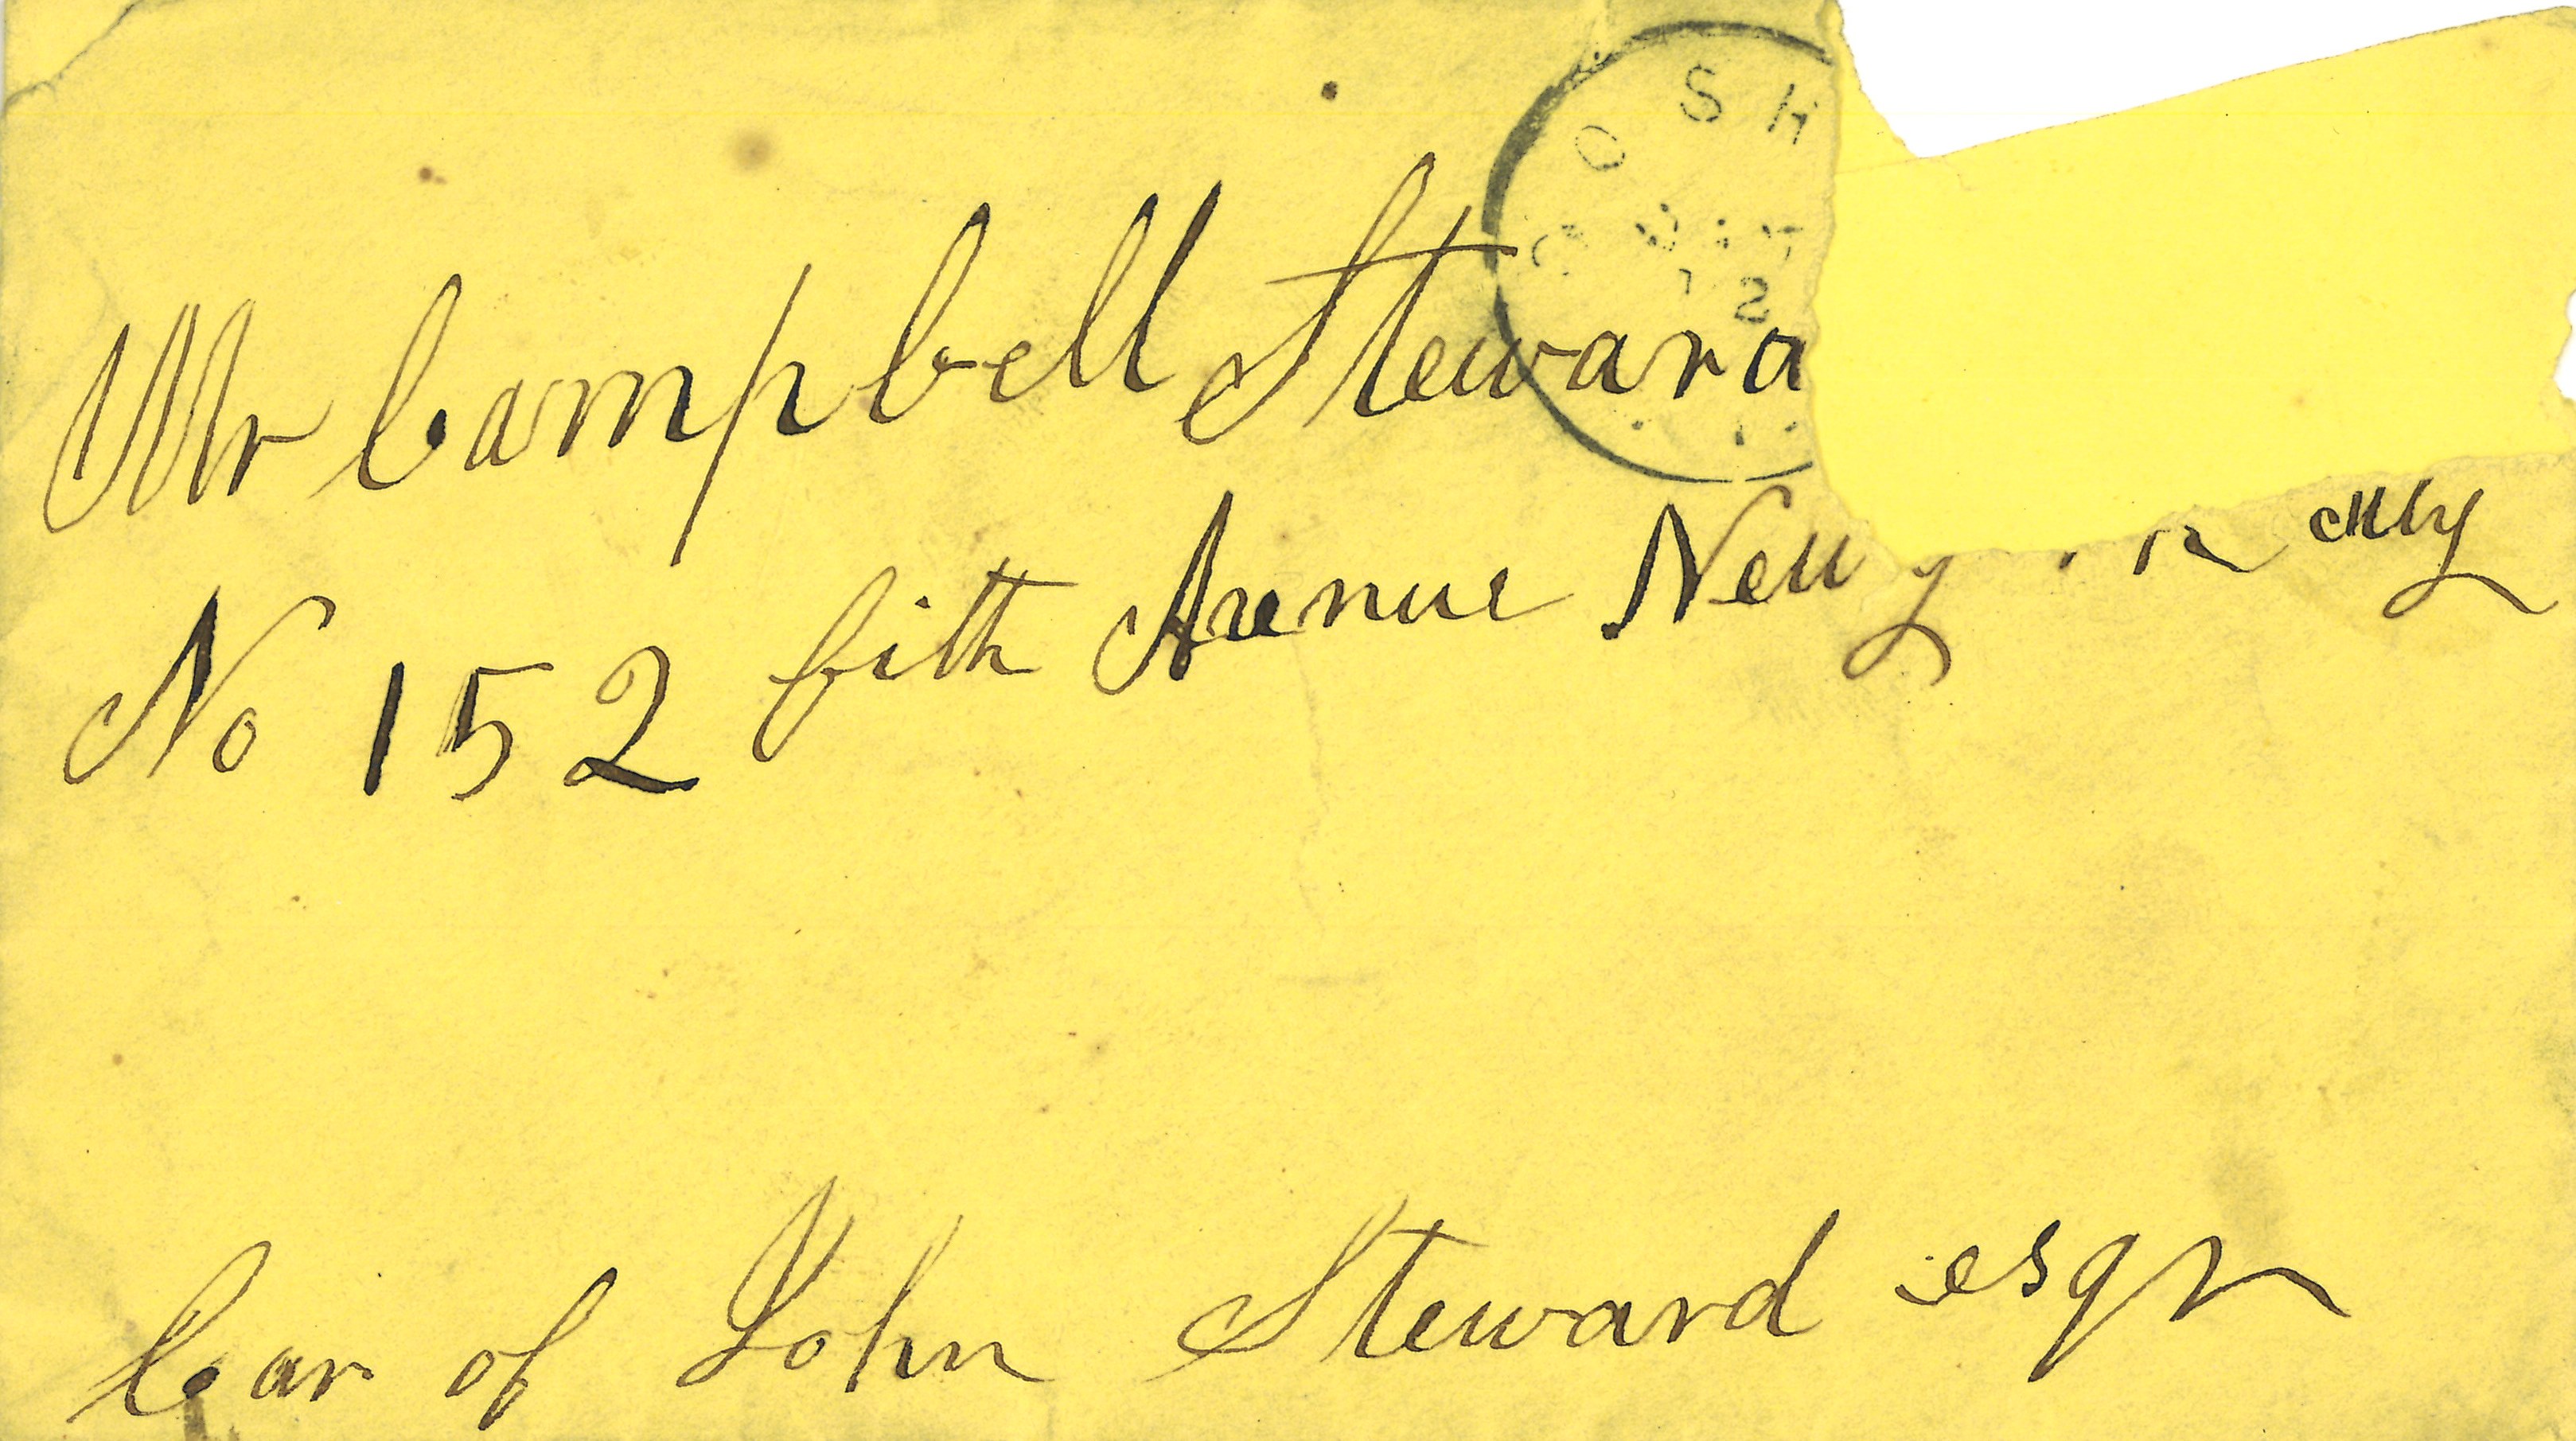 OSH
12
Mr Campbell Steward
No 152 fith Avenue New
Car of John Steward esqr